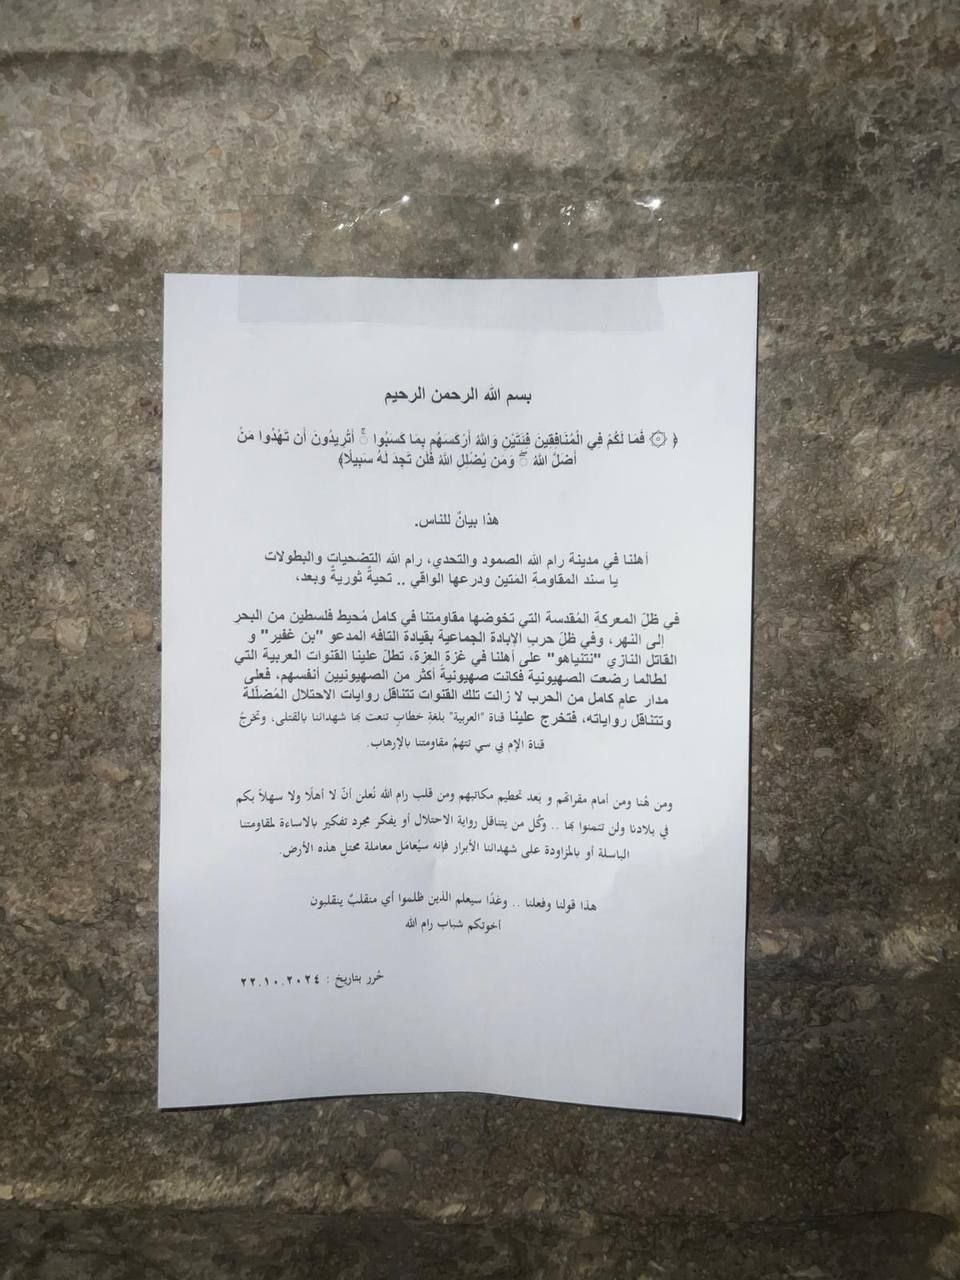 بسم الله الرحمن الرحيم
﴿ ۞ فَمَا لَكُمْ فِي الْمُنَافِقِينَ فِئَتَيْنِ وَاللَّهُ أَرْكَسَهُم بِمَا كَسَبُوا ۚ أَتُرِيدُونَ أَن تَهْدُوا مَنْ
أَضَلَّ اللَّهُ ۖ وَمَن يُضْلِلِ اللَّهُ فَلَن تَجِدَ لَهُ سَبِيلًا﴾
هذا بيانٌ للناس.
أهلنا في مدينة رام الله الصمود والتحدي، رام الله التضحيات والبطولات
يا سند المقاومة المتين ودرعها الواقي .. تحيةً ثوريةً وبعد،
في ظلّ المعركة المُقدسة التي تخوضها مقاومتنا في كامل مُحيط فلسطين من البحر
إلى النهر، وفي ظلّ حربِ الإبادة الجماعية بقيادة التافه المدعو "بن غفير" و
القاتل النازي "نتنياهو" على أهلنا في غزة العِزة، تطلّ علينا القنوات العربية التي
لطالما رضعت الصهيونية فكانت صهيونيةً أكثر من الصهيونيين أنفسهم، فعلى
مدار عامٍ كامل من الحرب لا زالت تلك القنوات تتناقل روايات الاحتلال المُضلّلة
وتتناقل رواياته، فتخرج علينا قناة "العربية" بلغةِ خطابٍ تنعت بها شهدائنا بالقتلى، وتخرجُ
قناة الإم بي سي تتهمُ مقاومتنا بالإرهاب.
ومن هُنا ومن أمام مقراتهم و بَعد تحطيم مكاتبهم ومن قلب رام الله نُعلن أنّ لا أهلًا ولا سهلاً بكم
في بلادنا ولن تنعموا بها .. وكُل من يتناقل رواية الاحتلال أو يفكر مجرد تفكير بالاساءة لمقاومتنا
الباسلة أو بالمزاودة على شهدائنا الأبرار فإنه سيُعامَل معاملة محتلِ هذه الأرض.
هذا قولنا وفعلنا .. وغدًا سيعلم الذين ظلموا أي منقلبٌ ينقلبون
أخوتكم شباب رام الله
حُرر بتاريخ : ٢٢.١٠.٢٠٢٤